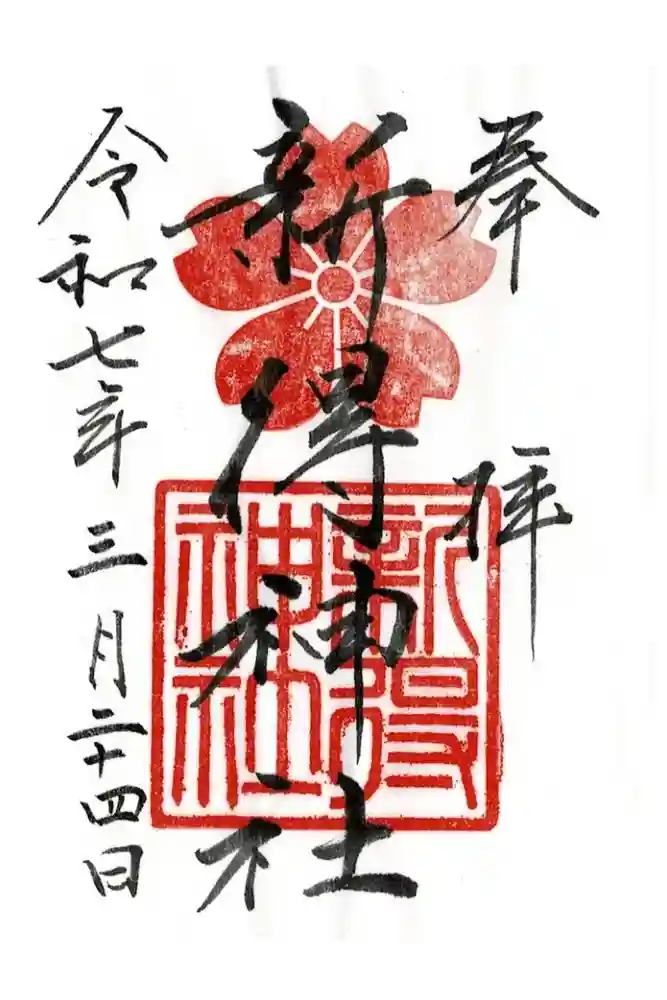 奉拝
新得神社
新得神社
令和七年三月二十四日